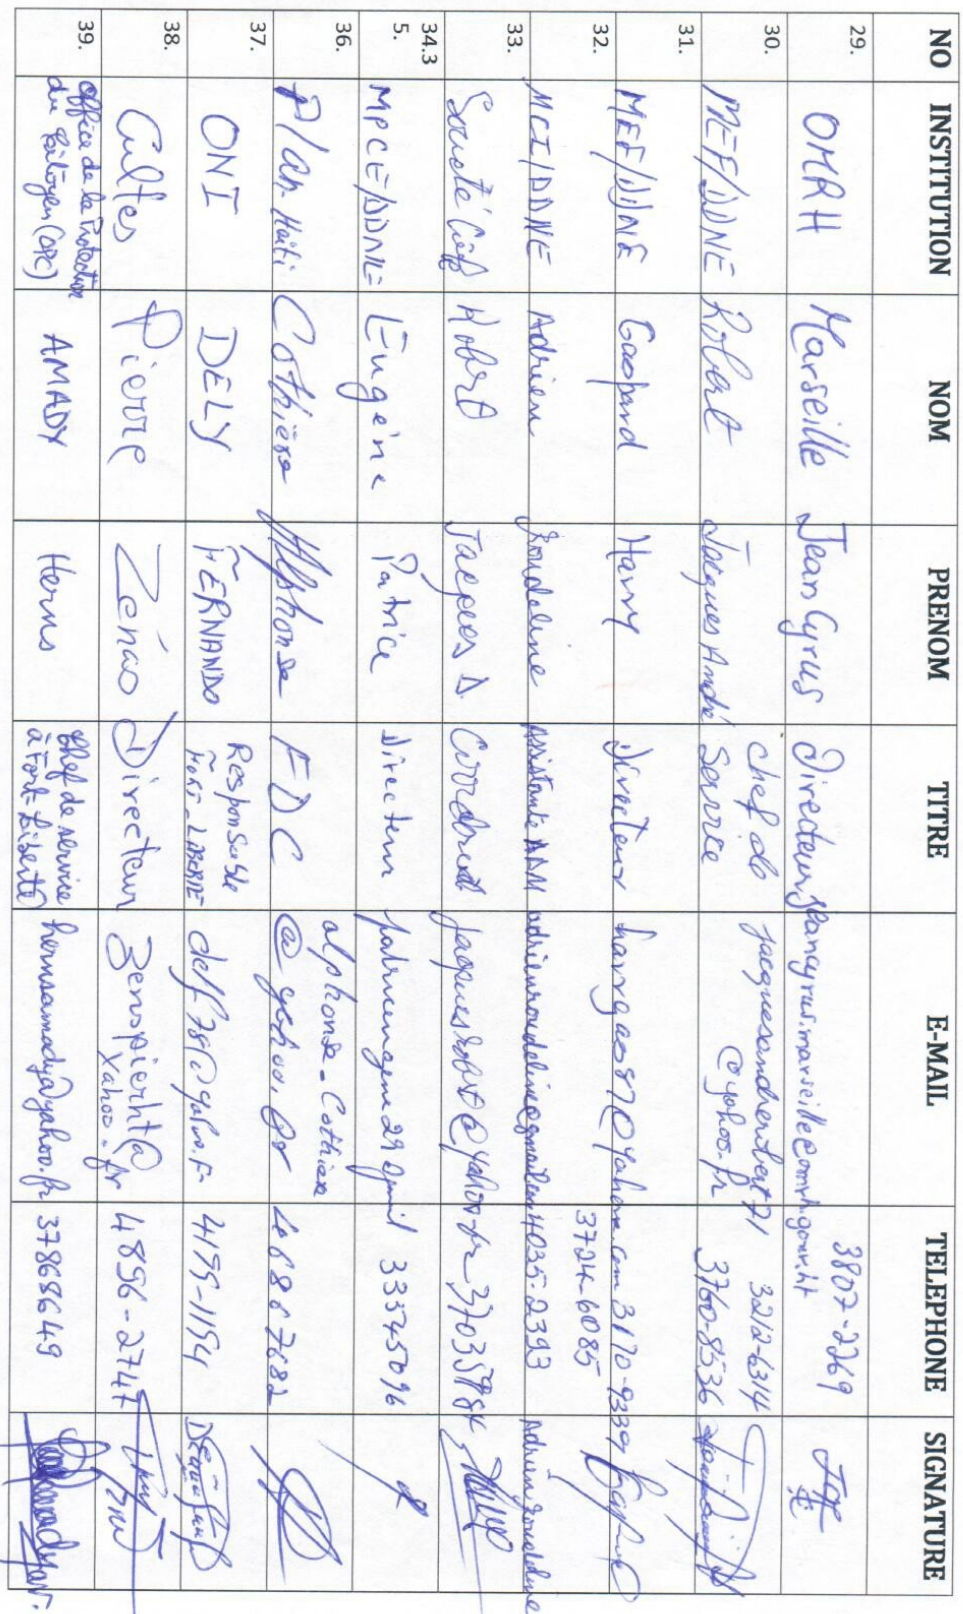 NO INSTITUTION NOM PRENOM TITRE E-MAIL TELEPHONE SIGNATURE
29. OMRH Marseille Jean Cyrus Directeur jeancyrus.marseille@omrh.gouv.ht 3807-2269
30. MEF/DDNE Robert Jacques André Chef de Service jacquesandrerobert71@yahoo.fr 3212-6314 3760-8536
31. MEF/DDNE Gaspard Harry Directeur hargas87@yahoo.com 3170-9339 3724-6085
32. MCI/DDNE Adrien Roudeline Assistante ADM adrienroudeline@gmail.com 4035-2393 Adrien Roudeline
33. Robert Jacques D. jacquesrobert@yahoo.fr 37035984
34.3 5. MPCE/DDNE Eugène Patrice Directeur 33545096
36. Plan Haiti Cothière Alphonse FDC alphonse-Cothiere@yahoo.fr 46886 7682
37. ONI DELY FERNANDO Responsable FORT-LIBERTE 4195-1154
38. Cultes Pierre Zénao Directeur 4896-2747
39. Office de la Protection du Citoyen (OPC) AMADY Herns Chef de service à Fort-Liberté hernsamady@yahoo.fr 37868649